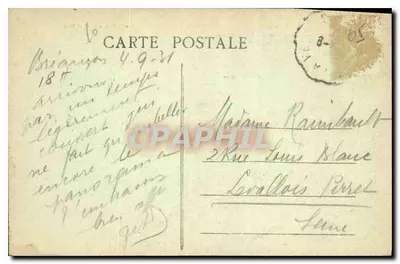 CARTE POSTALE
Briançon 4.9.31
18 H
arrivons
par un temps
légèrement
couvert qui
ne fait qu'embellir
encore le
panorama
t'embrasse
bien aff
CPARAMA
Madame Raimbault
2 Rue Louis Blanc
Levallois Perret
Seine